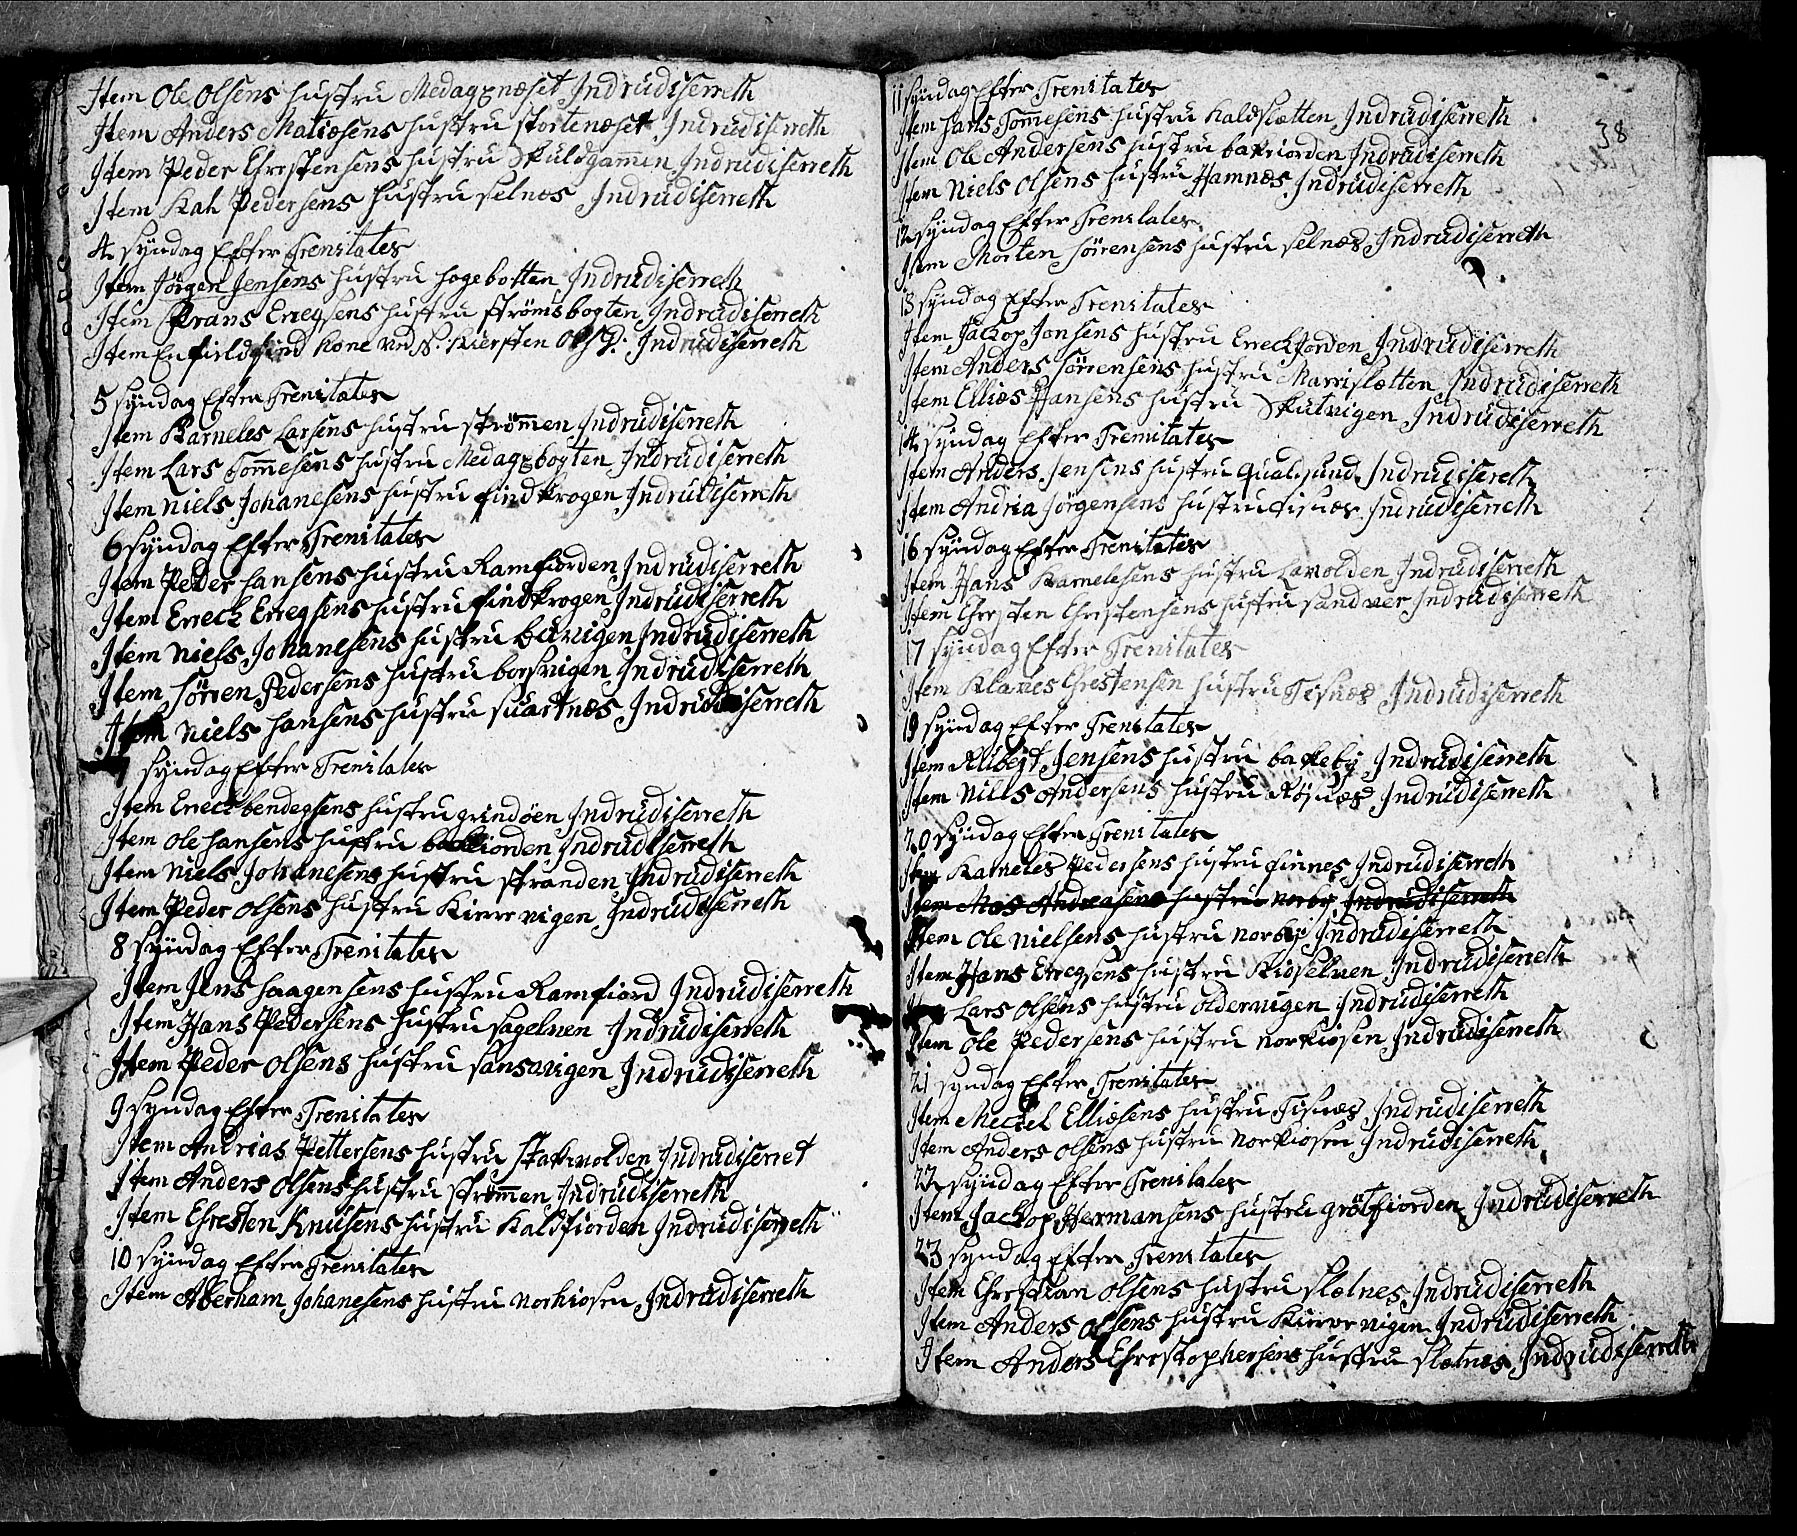 Item Ole Olsens hustru Medagznæset Indrüdiserreth
Item Anders Matiæsens hustru stortenæset Indrüdiserreth
Item Peder Chrestensens hustru Skuldgammen Indrüdiserreth
Item Kah Pedersens hustru selnes Indrüdiserreth
4 Syndag Efter Trenitates
Item Jörgen Jensens hustru hogebotten Indrüdiserreth
Item Frans Erregsens hustru strömsbogten Indrüdiserreth
Item En fieldfind kone ved N. Kiersten Ols D: Indrüdiserreth
5 Syndag Efter Trenitates
Item Karneles Larsens hustru strömmen Indrüdiserreth
Item Lars Tommesens hustru Medagzbogten Indrüdiserreth
Item Niels Johanesens hustru findkrogen Indrüdiserreth
6 Syndag Efter Trenitates
Item Peder hansens hustru Ramfiorden Indrüdiserreth
Item Erreck Erregsens hustru findkrogen Indrüdiserreth
Item Niels Johanesens hustru burvigen Indrüdiserreth
Item Sörren Pedersens hustru borsvigen Indrüdiserreth
Item Niels hansens hustru suartnæs Indrüdiserreth
7 Syndag Efter Trenitates
Item Erreck bendegsens hustru grindöen Indrüdiserreth
Item Ole hansens hustru bakkiorden Indrüdiserreth
Item Niels Johanesens hustru stranden Indrüdiserreth
Item Peder Olsens hustru Kirrevigen Indrüdiserreth
8 Syndag Efter Trenitates
Item Jens haagensens hustru Ramfiord Indrüdiserreth
Item Hans Pedersens hustru sagelven Indrüdiserreth
Item Peder Olsens hustru sansvigen Indrüdiserreth
9 Syndag Efter Trenitates
Item Andrias Pettersens hustru Stakevolden Indrüdiserret
Item Anders Olsens hustru strömmen Indrüdiserreth
Item Chresten Knusens hustru Kaldfiorden Indrüdiserreth
10 Syndag Efter Trenitates
Item Aberham Johanesens hustru Norkiosen Indrüdiserreth
38
11 Syndag Efter Trenitates
Item hans Tommesens hustru Kaldsletten Indrüdiserreth
Item Ole Andersens hustru bakkiorden Indrüdiserreth
Item Niels Olsens hustru Hamnæs Indrüdiserreth
12 Syndag Efter Trenitates
Item Morten Sörensens hustru selnæs Indrüdiserreth
13 Syndag Efter Trenitates
Item Jackop Jonsens hustru Erreckfjorden Indrüdiserreth
Item Anders Sörrensens hustru Marrisletten Indrüdiserreth
Item Ellias Hansens hustru Skutvigen Indrüdiserreth
14 Syndag Efter Trenitates
Item Anders Jensens hustru Qualsund Indrüdiserreth
Item Andria Jörgensens hustru tisnæs Indrüdiserreth
16 Syndag Efter Trenitates
Item Hans Karnelesens hustru Larvolden Indrüdiserreth
Item Chresten Chrestensens hustru sandver Indrüdiserreth
17 Syndag Efter Trenitates
Item Klames Chrestensen hustru Tisnæs Indrüdiserreth
19 Syndag Efter Trenitates
Item Allbegt Jensens hustru bakkeby Indrüdiserreth
Item Niels Andersens hustru Rösnæs Indrüdiserreth
20 Syndag Efter Trenitates
Item Karneles Pedersens hustru finnes Indrüdiserreth
Item Mas Andreasens hustru Norby Indrüdiserreth
Item Ole Nielsens hustru Norby Indrüdiserreth
Item Hans Erregsens hustru Kioselven Indrüdiserreth
Lars Olsens hustru oldervigen Indrüdiserreth
Item Ole Pedersens hustru Norkiosen Indrüdiserreth
21 Syndag Efter Trenitates
Item Meckel Elliæsens hustru Tisnæs Indrüdiserreth
Item Anders Olsens hustru Norkiosen Indrüdiserreth
22 Syndag Efter Trenitates
Item Jackop Hermansens hustru grötfiorden Indrüdiserreth
23 Syndag Efter Trenitates
Item Chrestian Olsens hustru Slætnes Indrüdiserreth
Item Anders Olsens hustru Kirrevigen Indrüdiserreth
Item Anders Chrestophersens hustru Slætnes Indrüdiserreth